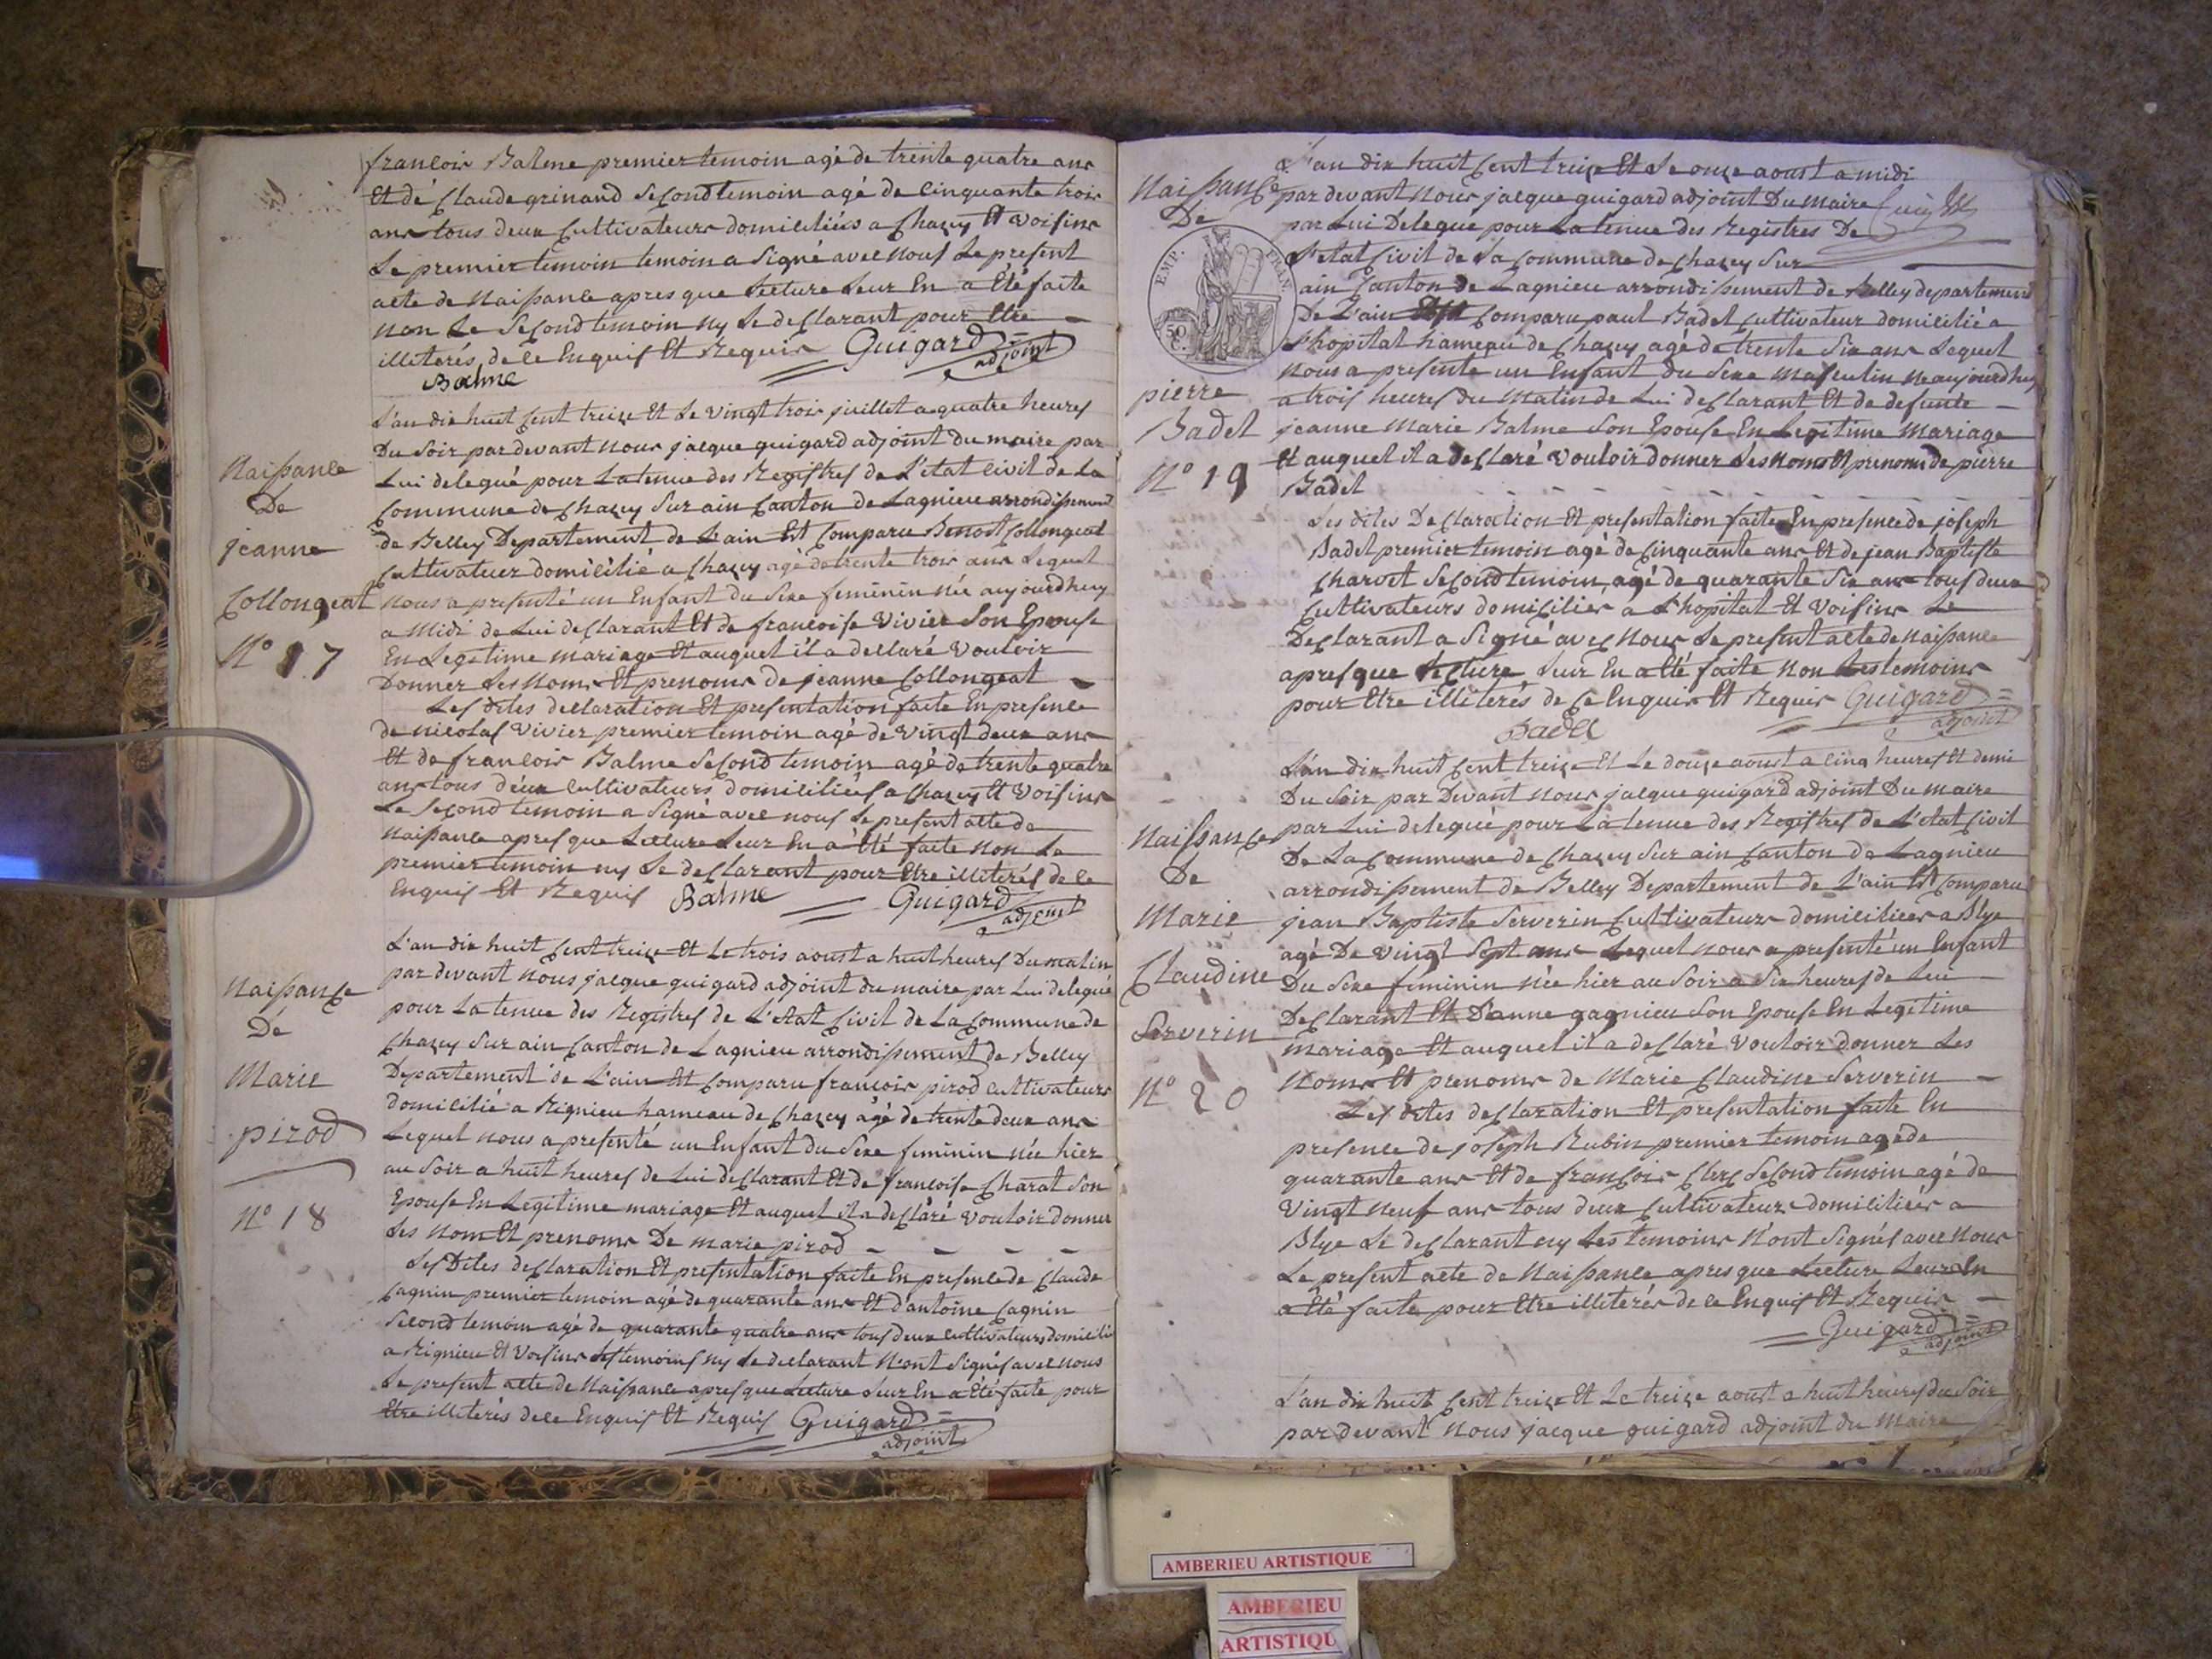 francois Balme premier temoin agé de trente quatre ans
Et de Claude grinand Second temoin agé de Cinquante trois
ans tous deux Cultivateurs domiciliés a Chazey Et Voisins
Le premier temoin temoin a Signé avec nous Le present
acte de Naissance apres que Lecture Leur En a Eté faite
non Le Second temoin ny Le declarant pour Etre
illiterés de ce Enquis Et Requis Guigard
adjoint
Balme
Naissance
De
jeanne
Collongeat
N° 17
L'an dix huit Cent treize Et Le Vingt trois juillet a quatre heures
Du Soir par devant nous jacque guigard adjoint du maire par
Lui delegué pour La tenue des Registres de L'etat civil de La
Commune de Chazey Sur ain Canton de Lagnieu arrondissement
de Belley Departement de L'ain Est Comparu Benoit Collongeat
Cultivateur domicilié a Chazey agé de trente trois ans Lequel
nous a presenté un Enfant du Sexe feminin née aujourdhuy
a Midi de Lui declarant Et de francoise Vivier Son Epouse
En Legitime mariage Et auquel il a declaré Vouloir
Donner Les Noms Et prenoms de jeanne Collongeat
Les dites declaration Et presentation faite En presence
de nicolas Vivier premier temoin agé de Vingt deux ans
Et de francois Balme Second temoin agé de trente quatre
ans tous deux Cultivateurs domiciliés a Chazey Et Voisins
Le Second temoin a Signé avec nous Le present acte de
Naissance apres que Lecture Leur En a Eté faite non Le
premier temoin ny Le declarant pour Etre illiterés de ce
Enquis Et Requis Balme Guigard
adjoint
Naissance
De
Marie
pirod
N° 18
L'an dix huit Cent treize Et Le trois aoust a huit heures Du matin
par devant nous jacque guigard adjoint du maire par Lui delegué
pour La tenue des Registres de L'etat Civil de La Commune de
Chazey Sur ain Canton de Lagnieu arrondissement de Belley
Departement de L'ain Est Comparu francois pirod cultivateurs
domicilié a Rignieu hameau de Chazey agé de trente deux ans
Lequel nous a presenté un Enfant du Sexe feminin née hier
au Soir a huit heures de Lui declarant Et de francoise Charat Son
Epouse En Legitime mariage Et auquel il a declaré Vouloir donner
Les Nom Et prenoms De marie pirod
Les Dites declaration Et presentation faite En presence de Claude
Cagnin premier temoin agé de quarante ans Et d'antoine Cagnin
Second temoin agé de quarante quatre ans tous deux cultivateurs domicilié
a Rignieu Et Voisins Les temoins ny Le declarant N'ont Signés avec nous
Le present acte de Naissance apres que Lecture Leur En a Eté faite pour
Etre illiterés de ce Enquis Et Requis Guigard
adjoint
Naissance
De
EMP. FRAN.
50
C.
pierre
Badet
N° 19
L'an dix huit Cent treize Et Le onze aoust a midi
par devant Nous jacque guigard adjoint Du maire
par Lui Delegue pour La tenue des Registres De
L'etat Civil de La Commune de Chazey Sur
ain Canton de Lagnieu arrondissement de Belley departement
De L'ain Est Comparu paul Badet Cultivateur domicilié a
L'hopital hameau de Chazey agé de trente Six ans Lequel
Nous a presente un Enfant du Sexe masculin ne aujourdhuy
a trois heures du Matin de Lui declarant Et de defunte
jeanne Marie Balme Son Epouse En Legitime Mariage
Et auquel il a declaré Vouloir donner Les Noms Et prenoms de pierre
Badet
Les dites Declaration Et presentation faite En presence de joseph
Badet premier temoin agé de Cinquante ans Et de jean Baptiste
Charvet Second temoin, agé de quarante Six ans tous deux
Cultivateurs domicilies a L'hopital Et Voisins Le
Declarant a Signé avec Nous Le present acte de Naissance
apres que Lecture Leur En a Eté faite Non Les temoins
pour Etre illiterés de Ce Enquis Et Requis Guigard
adjoint
Badet
Naissance
De
Marie
Claudine
Serverin
N° 20
L'an dix huit Cent treize Et Le douze aoust a cinq heures Et demi
Du Soir par Devant Nous jacque guigard adjoint Du maire
par Lui delegué pour La tenue des Registres de L'etat Civil
De La Commune de Chazey Sur ain Canton de Lagnieu
arrondissement de Belley Departement de L'ain Est Comparu
jean Baptiste Serverin Cultivateurs domiciliées a Blye
agé De Vingt Sept ans Lequel nous a presenté un Enfant
Du Sexe feminin née hier au Soir a Six heures de Lui
Declarant Et D'anne gagnieu Son Epouse En Legitime
mariage Et auquel il a declaré Vouloir donner Les
Noms Et prenoms de Marie Claudine Serverin
Les dites declaration Et presentation faite En
presence de joseph Rubin premier temoin agé de
quarante ans Et de francois Clerc Second temoin agé de
Vingt Neuf ans tous deux Cultivateurs domiciliées a
Blye Le declarant ny Les temoins N'ont Signés avec Nous
Le present acte de Naissance apres que Lecture Leur En
a Eté faite pour Etre illiterés de ce Enquis Et Requis
Guigard
adjoint
L'an dix huit Cent treize Et Le treize aoust a huit heures du Soir
par devant Nous jacque guigard adjoint du Maire
AMBERIEU ARTISTIQUE
AMBERIEU
ARTISTIQU